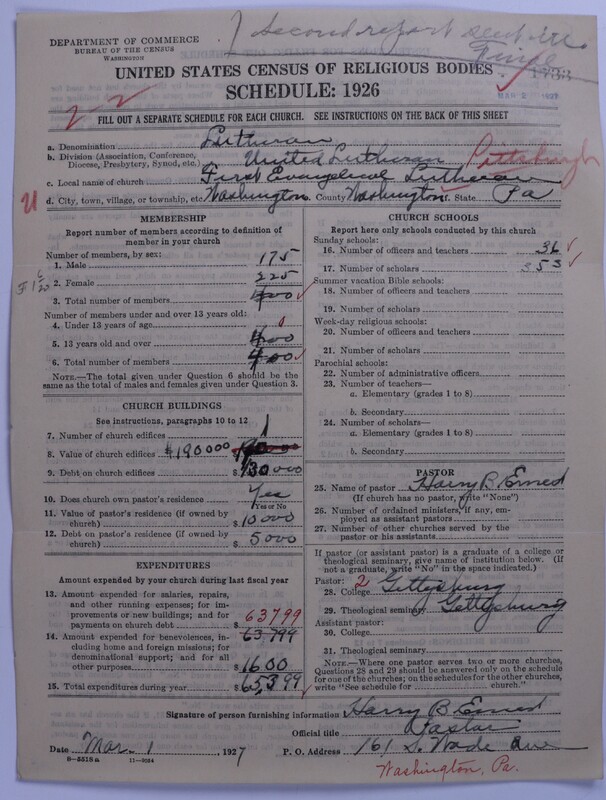 Second report sent in.
DEPARTMENT OF COMMERCE
BUREAU OF THE CENSUS
WASHINGTON
UNITED STATES CENSUS OF RELIGIOUS BODIES
SCHEDULE: 1926
2-2
FILL OUT A SEPARATE SCHEDULE FOR EACH CHURCH. SEE INSTRUCTIONS ON THE BACK OF THIS SHEET
a. Denomination Lutheran
b. Division (Association, Conference, Diocese, Presbytery, Synod, etc.) United Lutheran Pittsburgh
c. Local name of church First Evangelical Lutheran
d. City, town, village, or township, etc. Washington County Washington State Pa
MEMBERSHIP
Report number of members according to definition of
member in your church
Number of members, by sex:
1. Male 175
2. Female 225
3. Total number of members 400
Number of members under and over 13 years old:
4. Under 13 years of age 0
5. 13 years old and over 400
6. Total number of members 400
NOTE.—The total given under Question 6 should be
the same as the total of males and females given under Question 3.
CHURCH BUILDINGS
See instructions, paragraphs 10 to 12
7. Number of church edifices 1
8. Value of church edifices $190000
9. Debt on church edifices $ 130000
10. Does church own pastor's residence Yes
Yes or No
11. Value of pastor's residence (if owned by
church) $ 10000
12. Debt on pastor's residence (if owned by
church) $ 5000
EXPENDITURES
Amount expended by your church during last fiscal year
13. Amount expended for salaries, repairs,
and other running expenses; for im-
provements or new buildings; and for
payments on church debt $ 63799
63799
14. Amount expended for benevolences,
including home and foreign missions; for
denominational support; and for all
other purposes $ 1600
15. Total expenditures during year $ 65399
CHURCH SCHOOLS
Report here only schools conducted by this church
Sunday schools:
16. Number of officers and teachers 36
17. Number of scholars 353
Summer vacation Bible schools:
18. Number of officers and teachers
19. Number of scholars
Week-day religious schools:
20. Number of officers and teachers
21. Number of scholars
Parochial schools:
22. Number of administrative officers
23. Number of teachers—
a. Elementary (grades 1 to 8)
b. Secondary
24. Number of scholars—
a. Elementary (grades 1 to 8)
b. Secondary
PASTOR
25. Name of pastor Harry B. Ernest
(If church has no pastor, write "None")
26. Number of ordained ministers, if any, em-
ployed as assistant pastors
27. Number of other churches served by the
pastor or his assistants
If pastor (or assistant pastor) is a graduate of a college or
theological seminary, give name of institution below. (If
not a graduate, write "No" in the space indicated.)
Pastor: 2
28. College Gettysburg
29. Theological seminary Gettysburg
Assistant pastor:
30. College
31. Theological seminary
NOTE.—Where one pastor serves two or more churches,
Questions 28 and 29 should be answered only on the schedule
for one of the churches; on the schedules for the other churches,
write "See schedule for church."
Signature of person furnishing information Harry B. Ernest
Official title Pastor
Date Mar. 1 1927 P. O. Address 161 S. Wade Ave
8-5518a 11-9054
Washington, Pa.